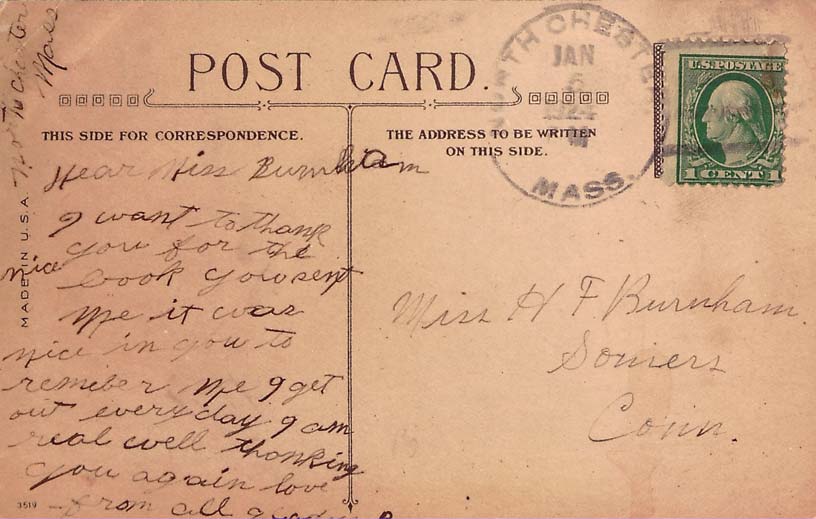 North Chester
Mass
POST CARD.
THIS SIDE FOR CORRESPONDENCE.
THE ADDRESS TO BE WRITTEN
ON THIS SIDE.
MADE IN U.S.A.
NORTH CHESTER
JAN
5
MASS.
U.S. POSTAGE
1 CENT 1
Dear Miss Burnham
I want to thank
you for the
nice book you sent
me it was
nice in you to
remeber me I get
out every day I am
real well thanking
you again love
from all
Miss H F Burnham.
Somers
Conn.
3519